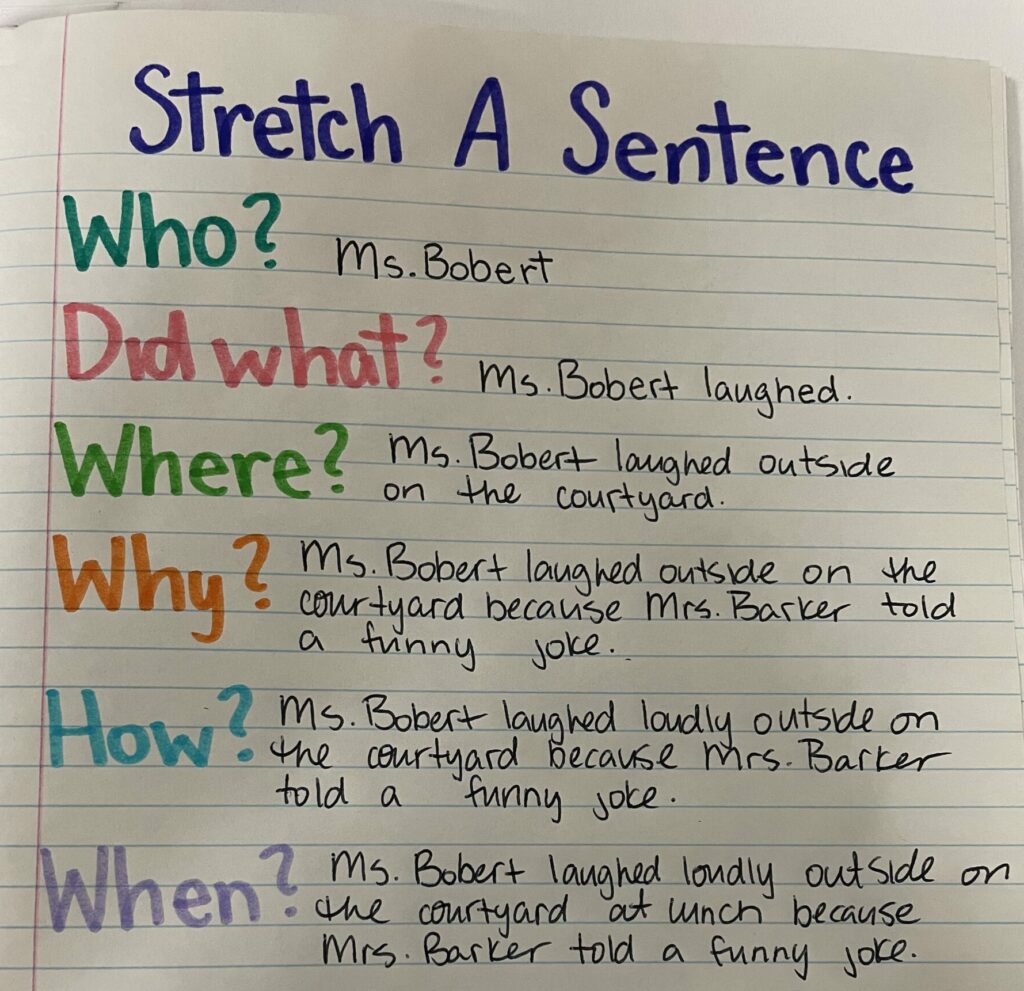 Stretch A Sentence
Who? Ms. Bobert
Did what? Ms. Bobert laughed.
Where? Ms. Bobert laughed outside
on the courtyard.
Why? Ms. Bobert laughed outside on the
courtyard because Mrs. Barker told
a funny joke.
How? Ms. Bobert laughed loudly outside on
the courtyard because Mrs. Barker
told a funny joke.
When? Ms. Bobert laughed loudly outside on
the courtyard at lunch because
Mrs. Barker told a funny joke.